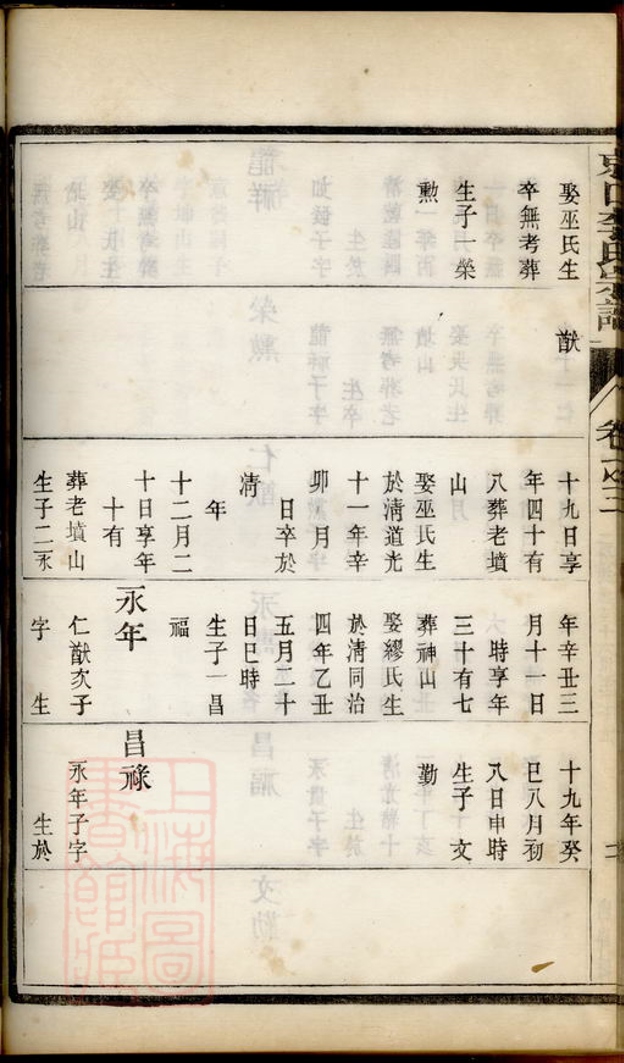 娶巫氏生
卒無考葬
生子一榮
勲
猷
十九日享
年四十有
八葬老墳
山
娶巫氏生
於清道光
十一年辛
卯 月
日卒於
清
年
十二月二
十日享年
十有
葬老墳山
生子二永
年辛丑三
月十一日
時享年
三十有七
葬神山
娶繆氏生
於清同治
四年乙丑
五月二十
日巳時
生子一昌
福
永年
仁猷次子
字 生
十九年癸
巳八月初
八日申時
生子 文
勤
昌祿
永年子字
生於
上海圖
書館藏